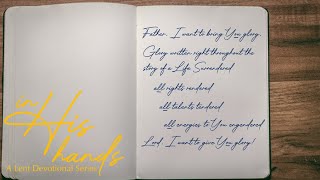 in
His
hands
A Lent Devotional Series
Father, I want to bring You glory.
Glory written right throughout the
story of a Life Surrendered
all rights rendered
all talents tendered
all energies to You engendered
Lord, I want to give You glory!